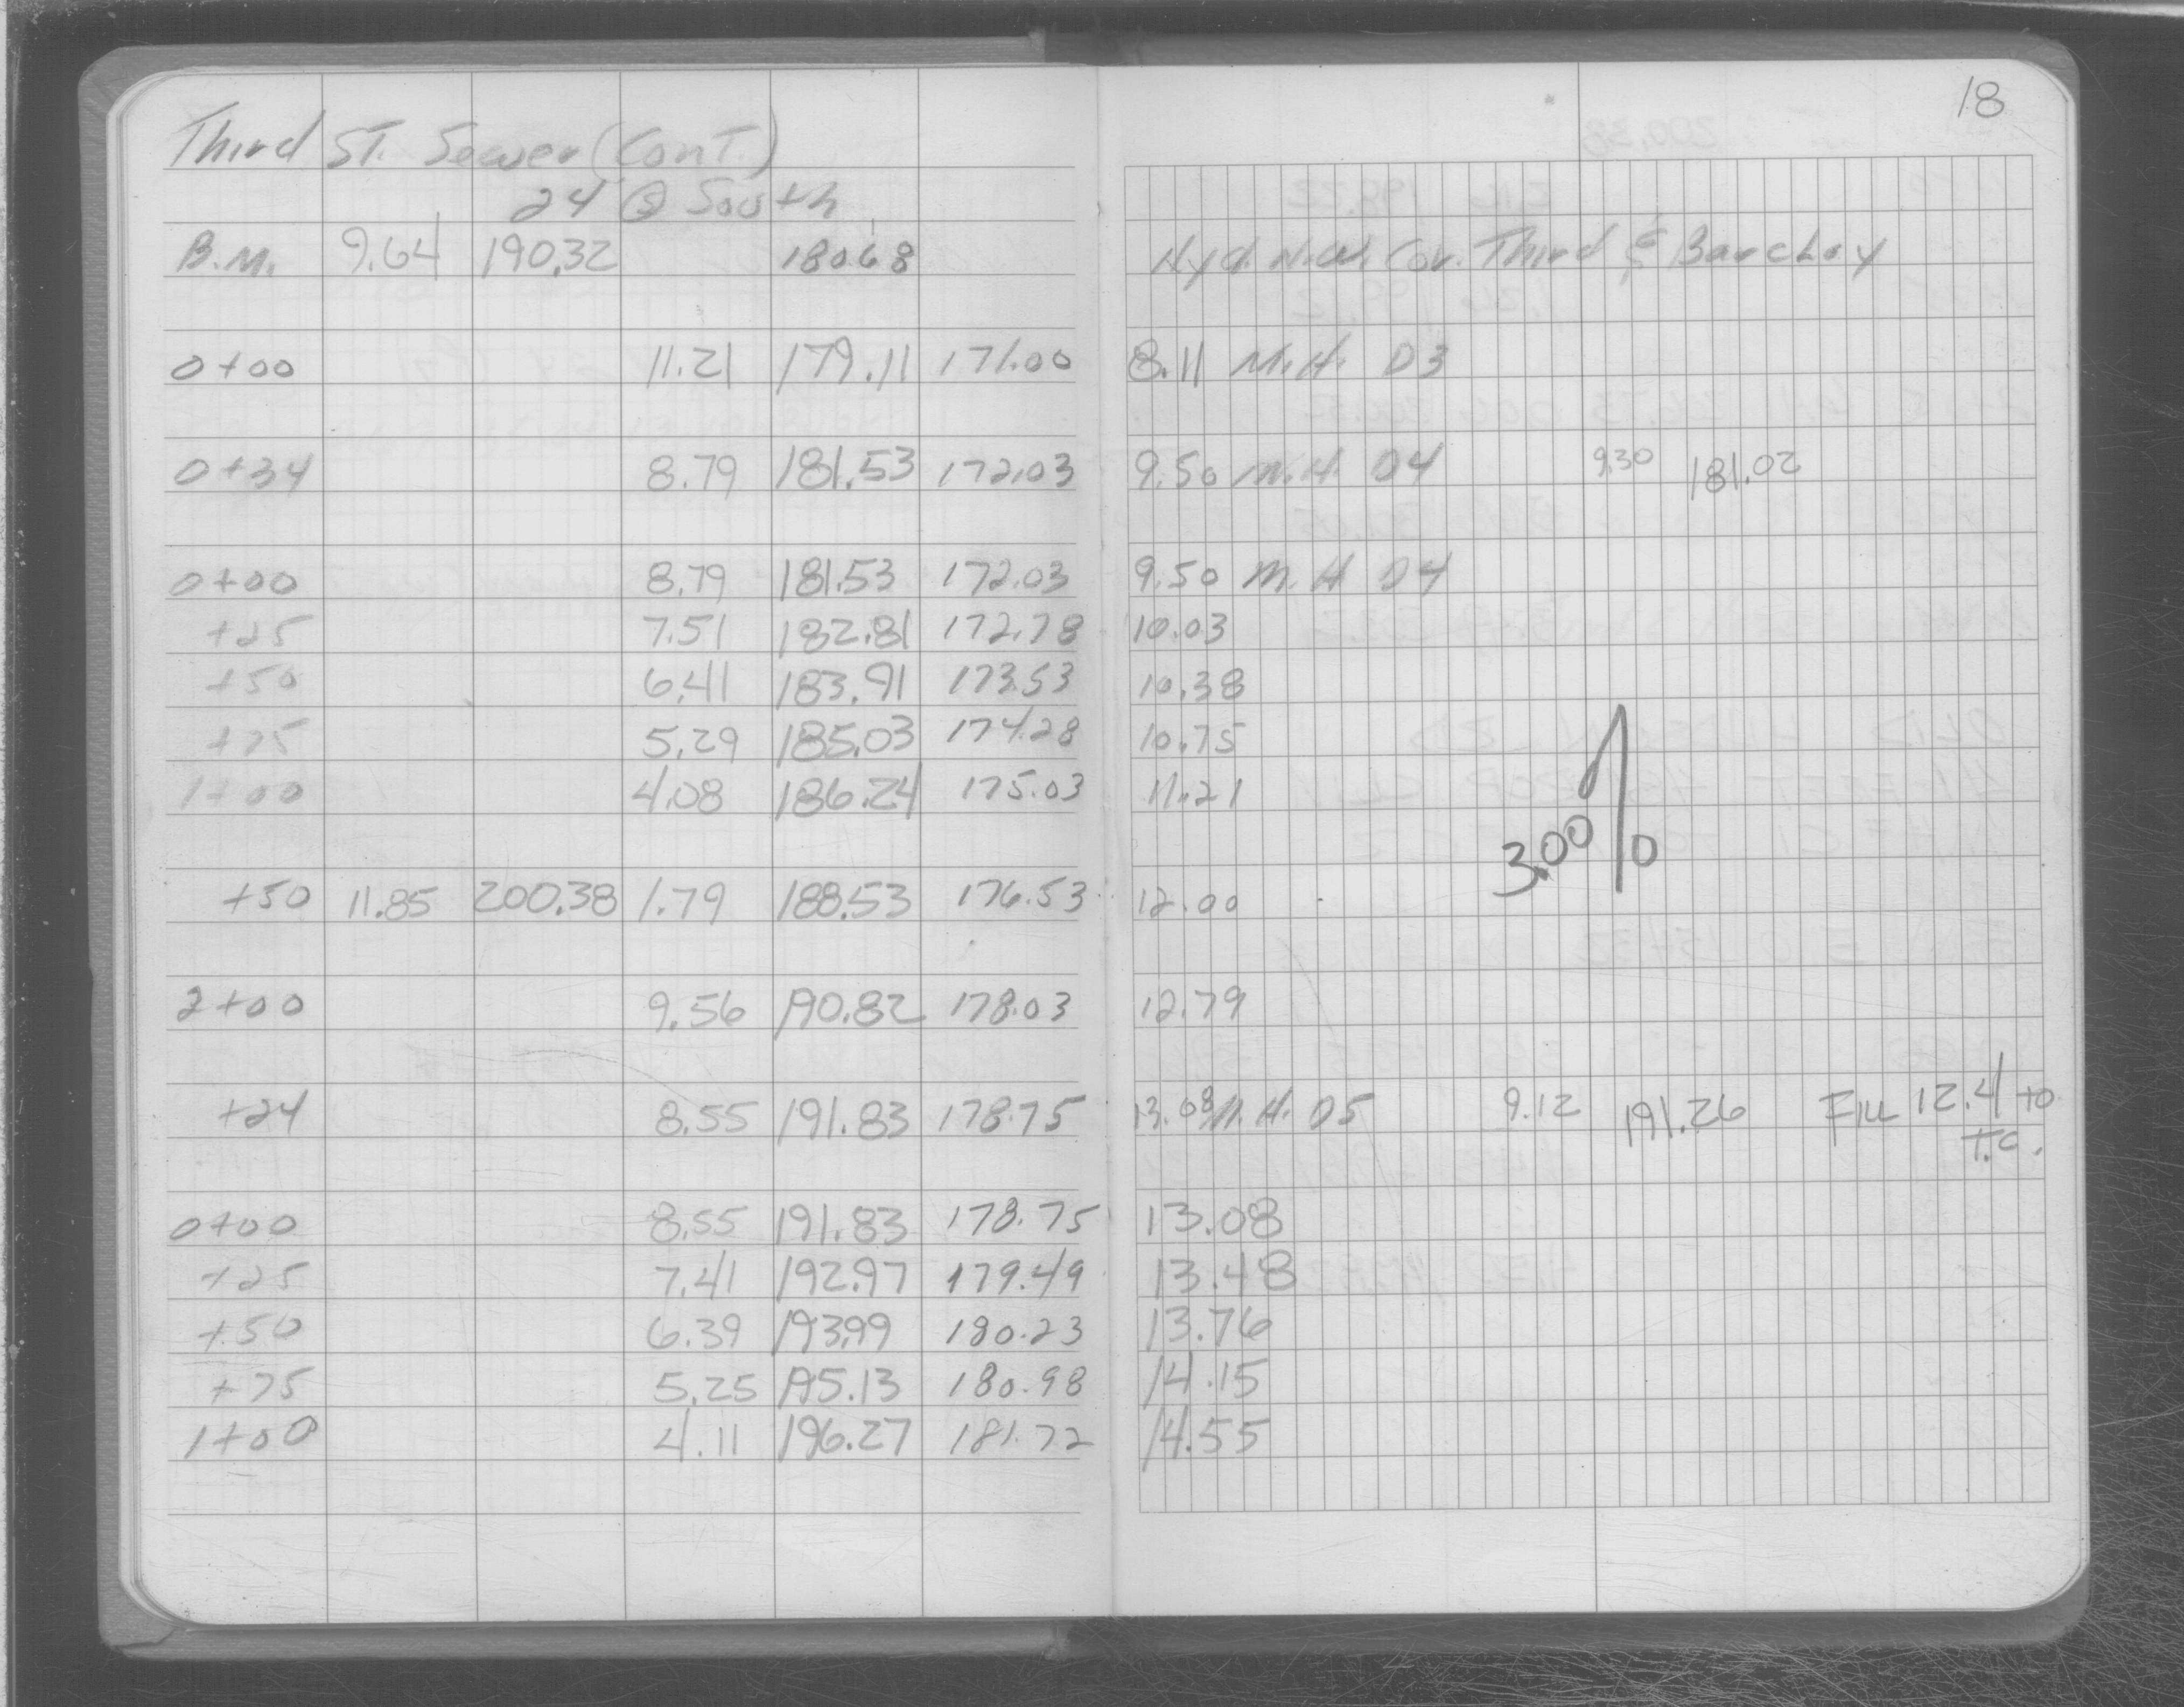 18
Third ST. Sewer (Cont.)
24 @ South
B.M. 9.64 190.32 180.68 Hyd. N.W. Cor. Third & Barclay
0+00 11.21 179.11 171.00 8.11 M.H. D3
0+34 8.79 181.53 172.03 9.50 M.H. D4 9.30 181.02
0+00 8.79 181.53 172.03 9.50 M.H D4
+25 7.51 182.81 172.78 10.03
+50 6.41 183.91 173.53 10.38
+75 5.29 185.03 174.28 10.75
1+00 4.08 186.24 175.03 11.21
3.00%
+50 11.85 200.38 1.79 188.53 176.53 12.00
2+00 9.56 190.82 178.03 12.79
+24 8.55 191.83 178.75 13.08 M.H. D5 9.12 191.26 FILL 12.4 to
T.C.
0+00 8.55 191.83 178.75 13.08
+25 7.41 192.97 179.49 13.48
+50 6.39 193.99 180.23 13.76
+75 5.25 195.13 180.98 14.15
1+00 4.11 196.27 181.72 14.55